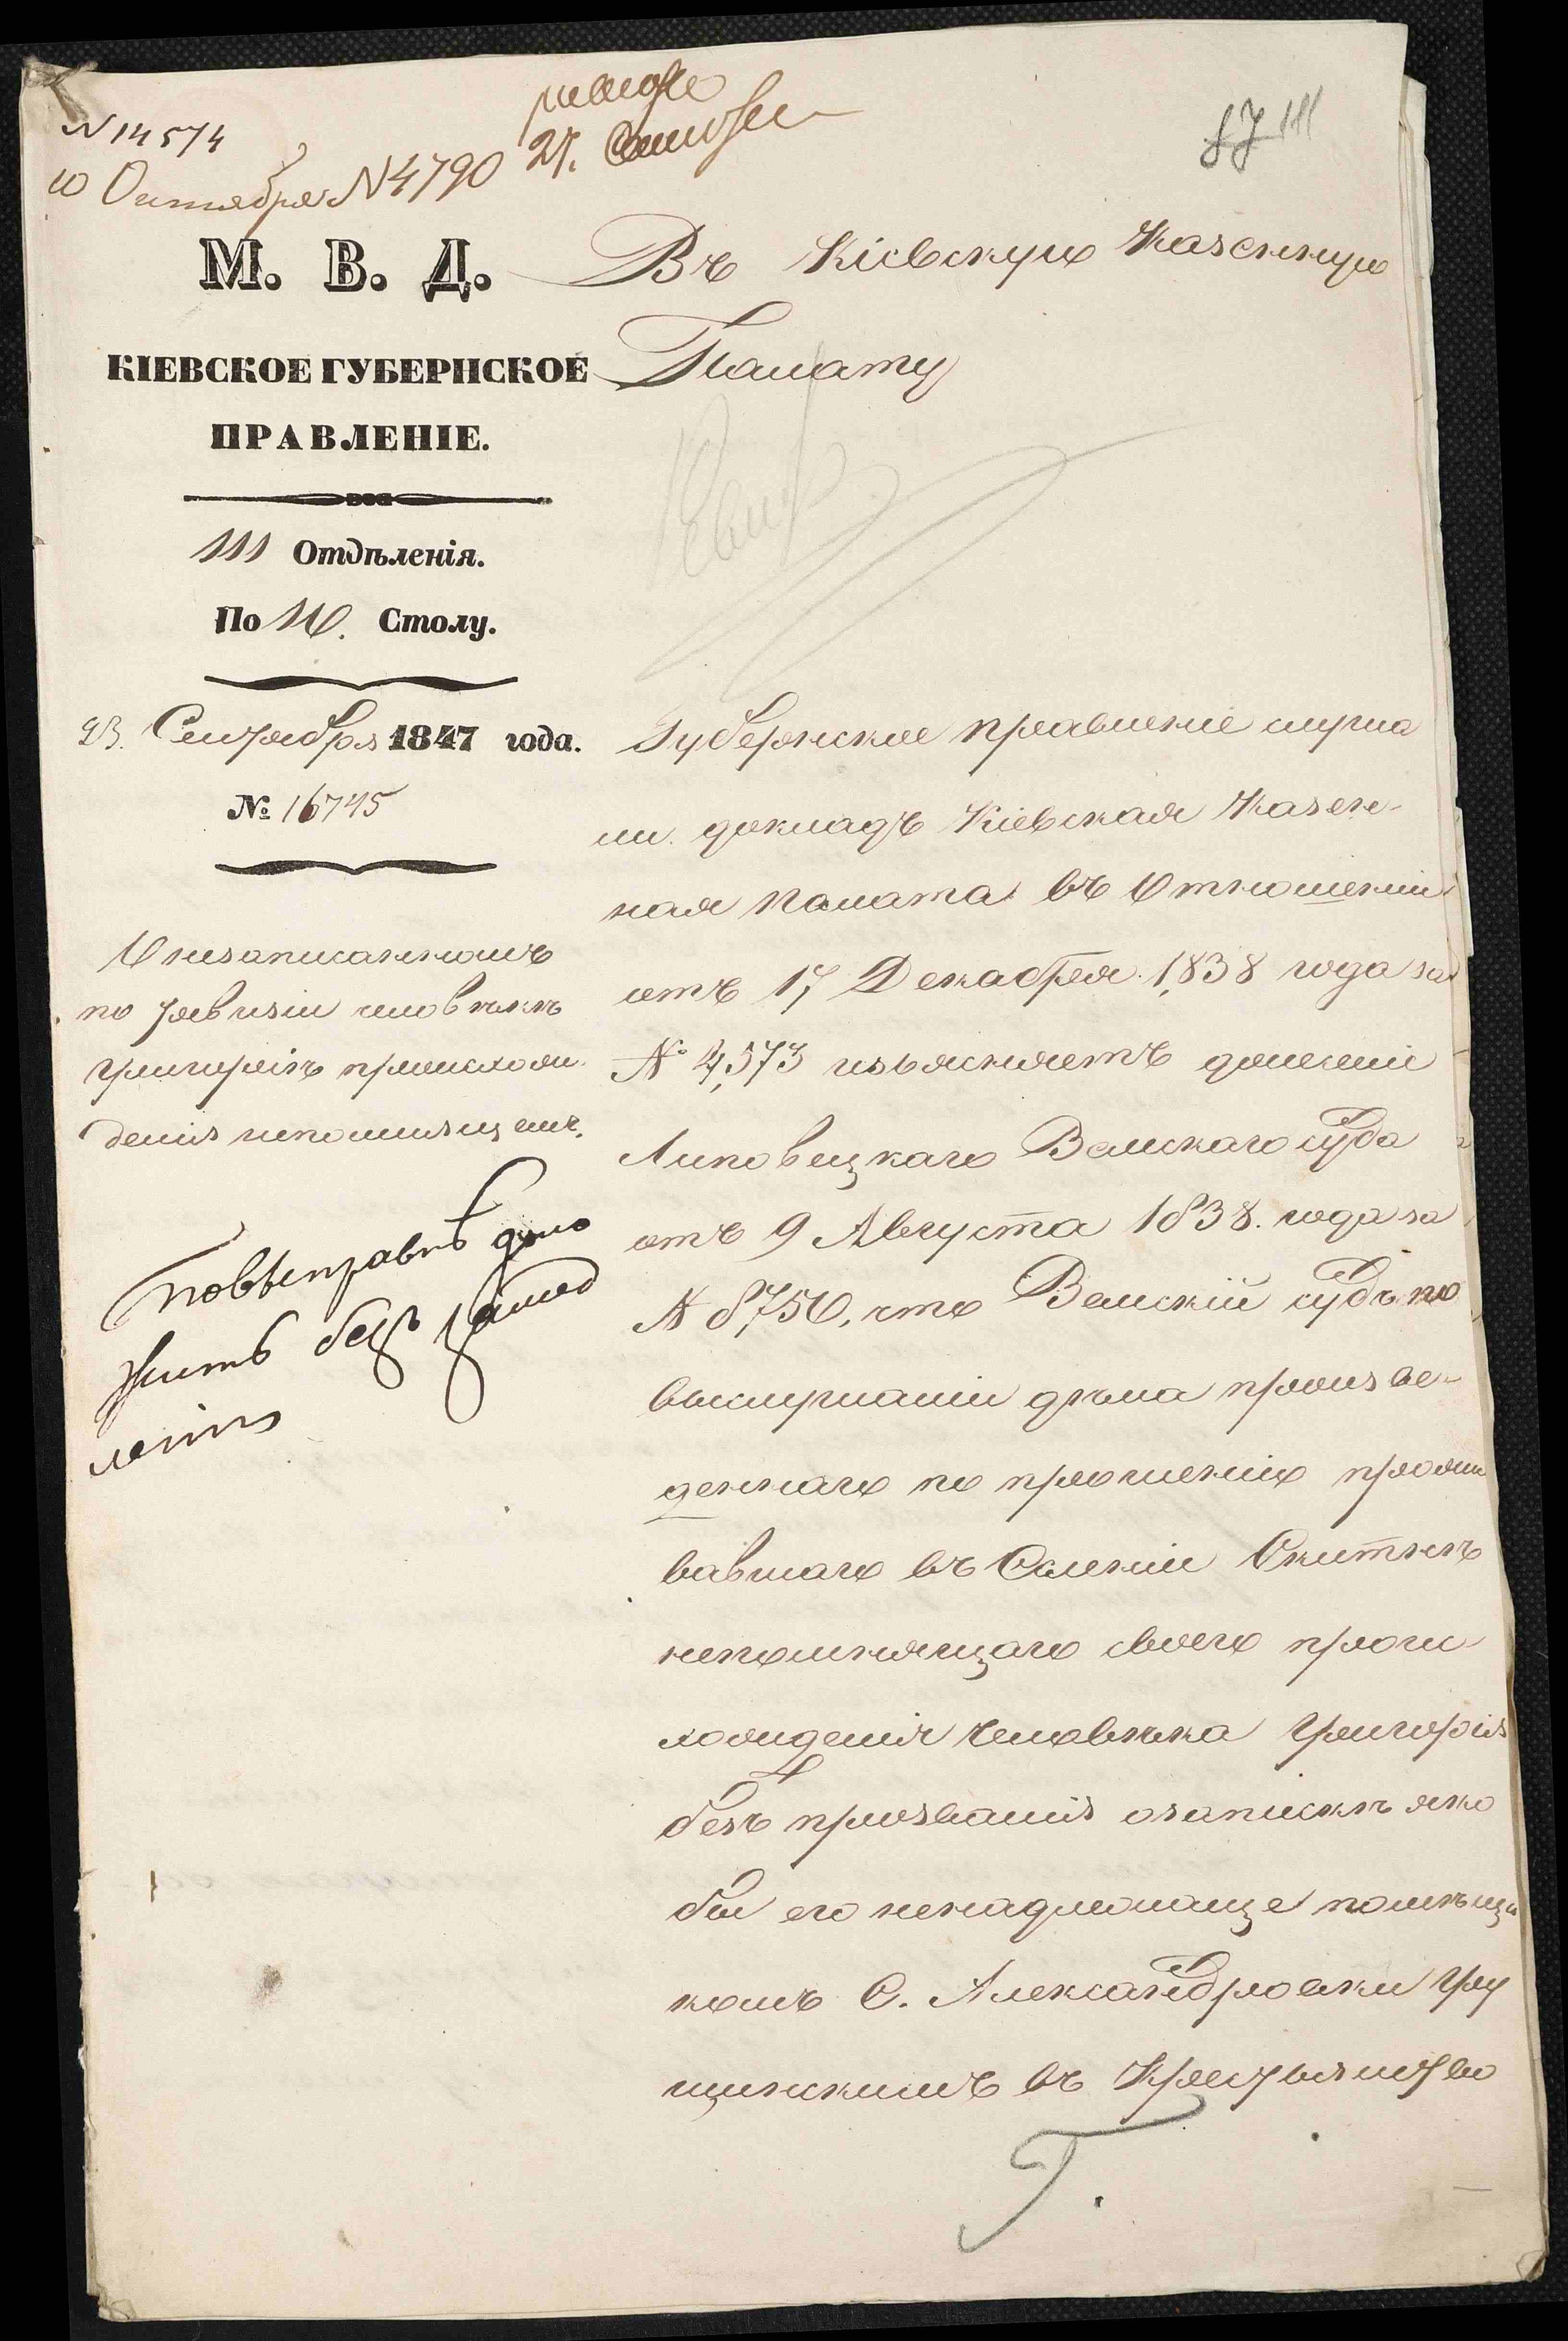 N 14574
10 Октября N 4790
27.
М. В. Д.
КІЕВСКОЕ ГУБЕРНСКОЕ
ПРАВЛЕНІЕ.
III Отдѣленія.
По Столу.
23. Сентября 1847 года.
№ 16745
О незаписанномъ
по ревизіи человѣкѣ
Григоріѣ происхож-
денія непомнящемъ.
Повыправкѣ доло
жить безъ замед
ленія
Въ Кіевскую Казенную
Палату
Губернское правленіе слуша
ли докладъ Кіевская Казен-
ная Палата въ Отношеніи
отъ 17 Декабря 1838 года за
№ 4,573 изъясняетъ донесеніе
Липовецкаго Земскаго суда
отъ 9 Августа 1838. года за
№ 8,750, что Земскій судъ по
выслушаніи дѣла произве-
деннаго по прошенію прожи
вавшаго въ Селеніи Скиткѣ
непомнящаго своего проис
хожденія человѣка Григорія
безъ прозванія озапискѣ яко
бы его ненадлежаще помѣщи
комъ С. Александровки Гру
щинскимъ въ Крестьянство
Г.